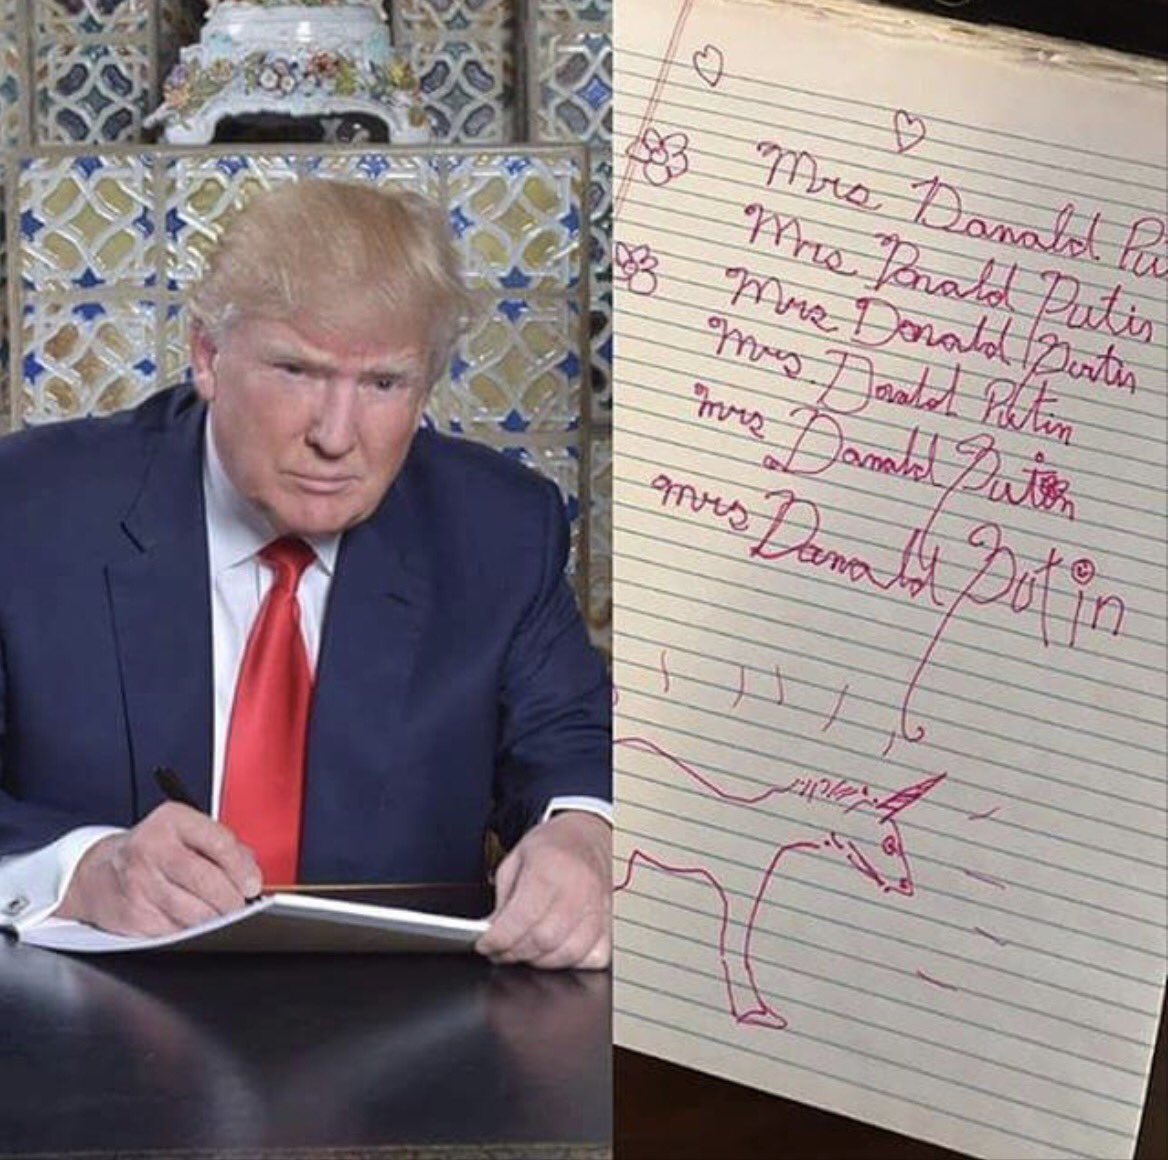 Mrs Donald Pu
Mrs Donald Putin
Mrs Donald Putin
Mrs. Donald Putin
mrs Donald Putin
mrs Donald Putin